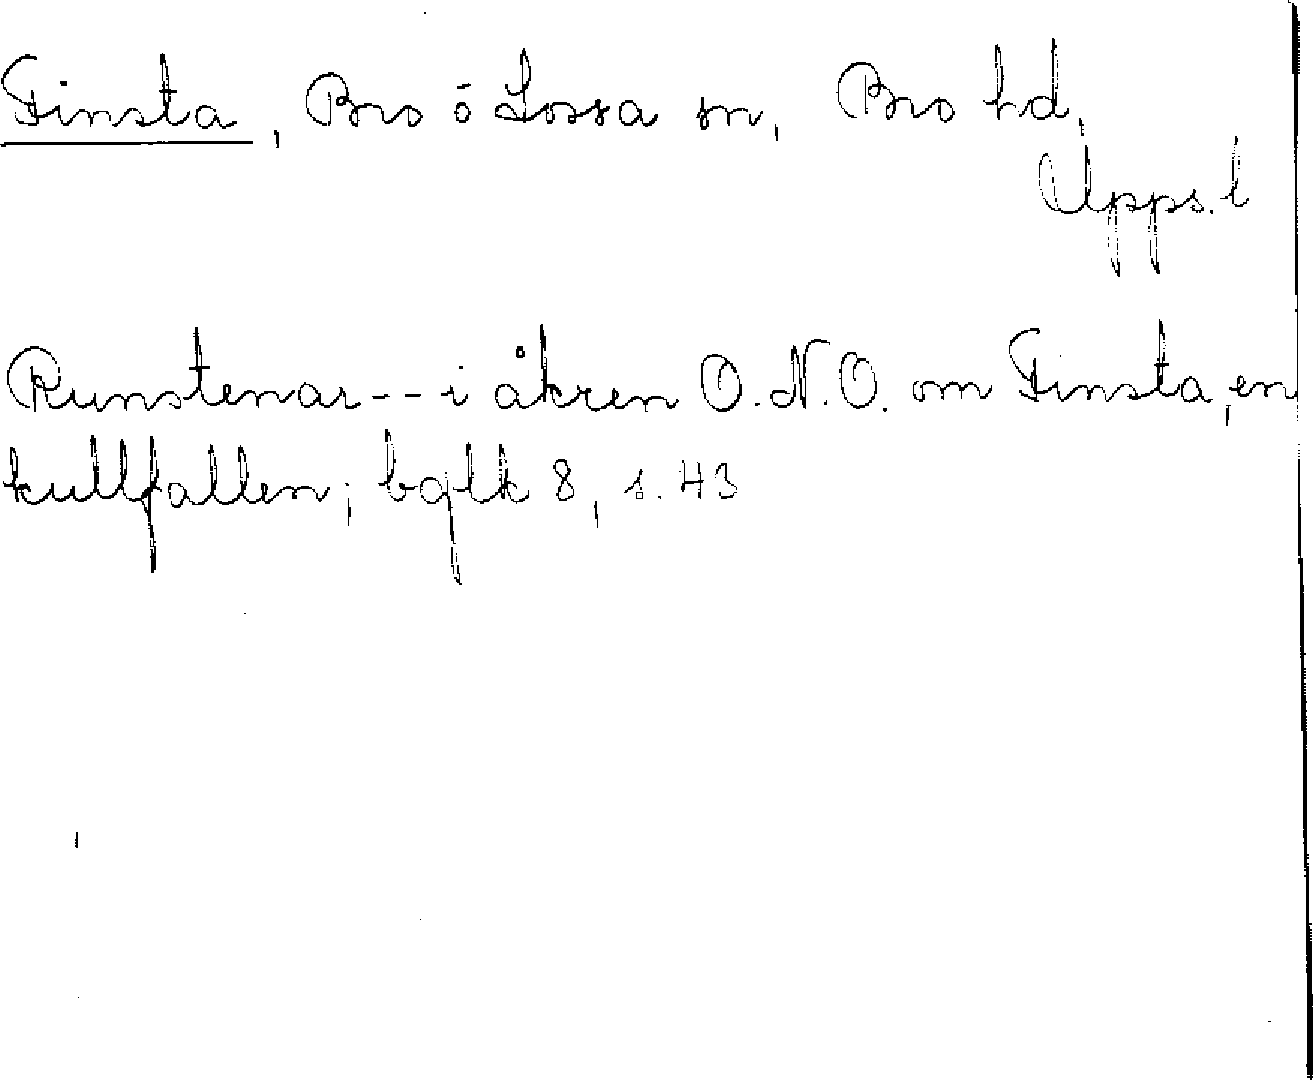 Finsta, Bro o Lossa sn, Bro hd,
Upps. l
Runstenar -- i åkren O.N.O. om Finsta, en
kullfallen; bglk 8, s. 43